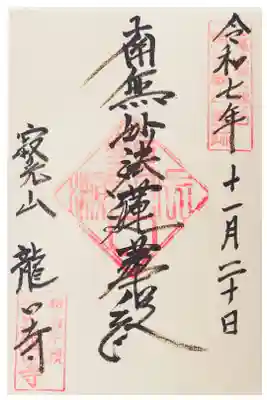 令和七年 十一月二十日
南無妙法蓮華経
寂光山 龍口寺